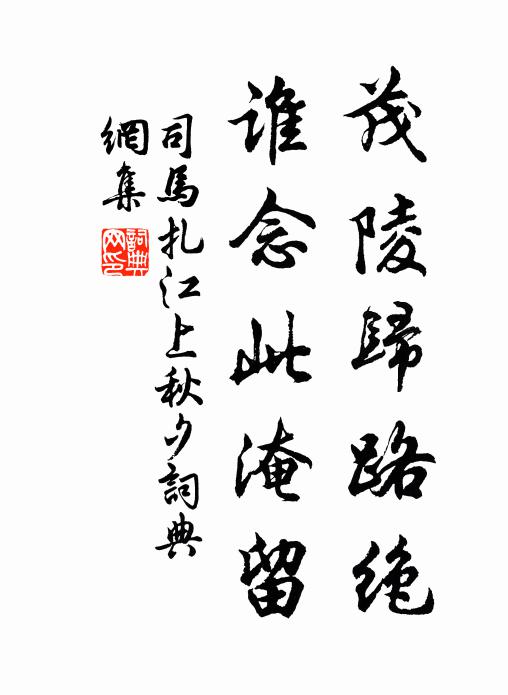 茂陵歸路絶
誰念此淹留
司馬扎江上秋夕詞典
網集
詞典
网印